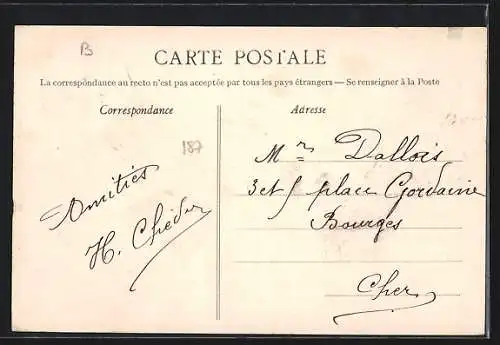 B
CARTE POSTALE
La correspondance au recto n'est pas acceptée par tous les pays étrangers — Se renseigner à la Poste
Correspondance
Adresse
187
Amitiés
H.
Mrs Dallois
3 et 5 place Gordaine
Bourges
Cher